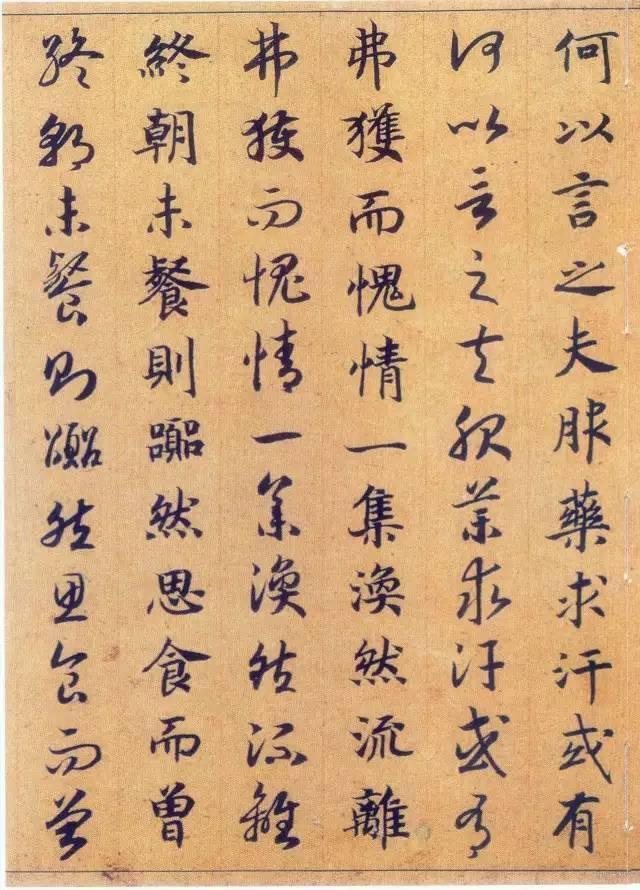 何以言之夫服藥求汗或有
何以言之夫服藥求汗或有
弗獲而愧情一集渙然流離
弗獲而愧情一集渙然流離
終朝未餐則囂然思食而曾
終朝未餐則囂然思食而曾